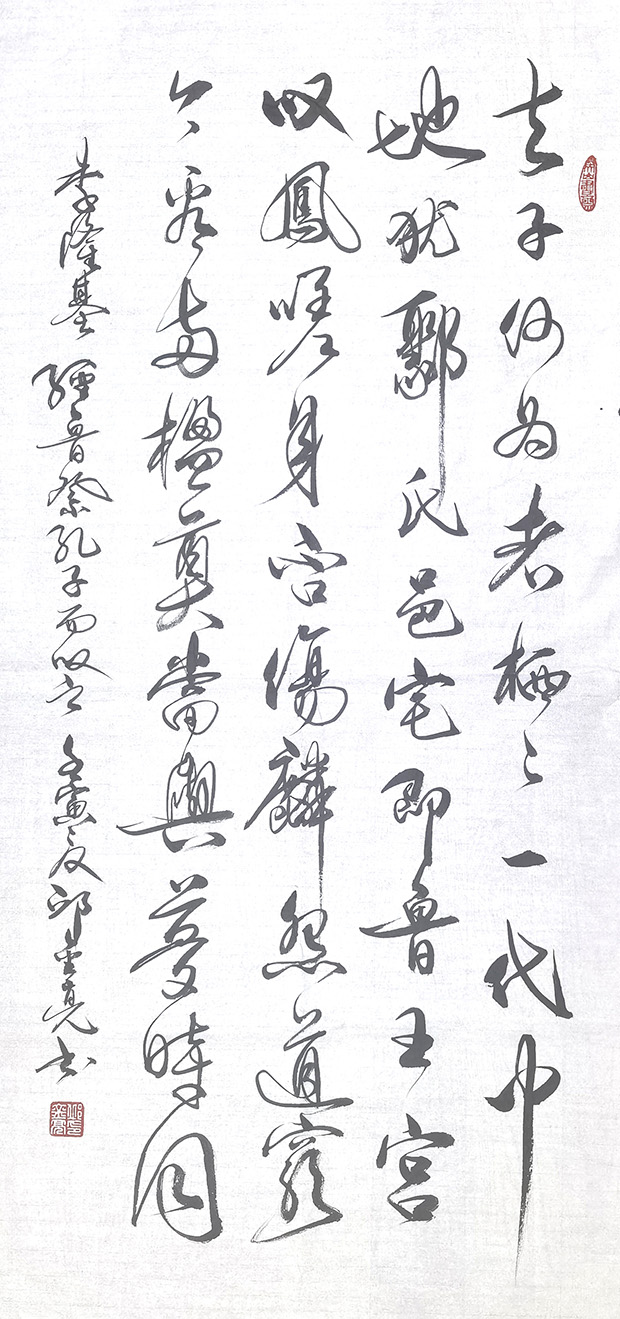 夫子何为者栖々一代中
地猶鄹氏邑宅即魯王宫
叹鳳嗟身否傷麟怨道窮
今看两楹奠當與夢時同
李隆基 經魯祭孔子而叹之 壬寅夏邱金亮书